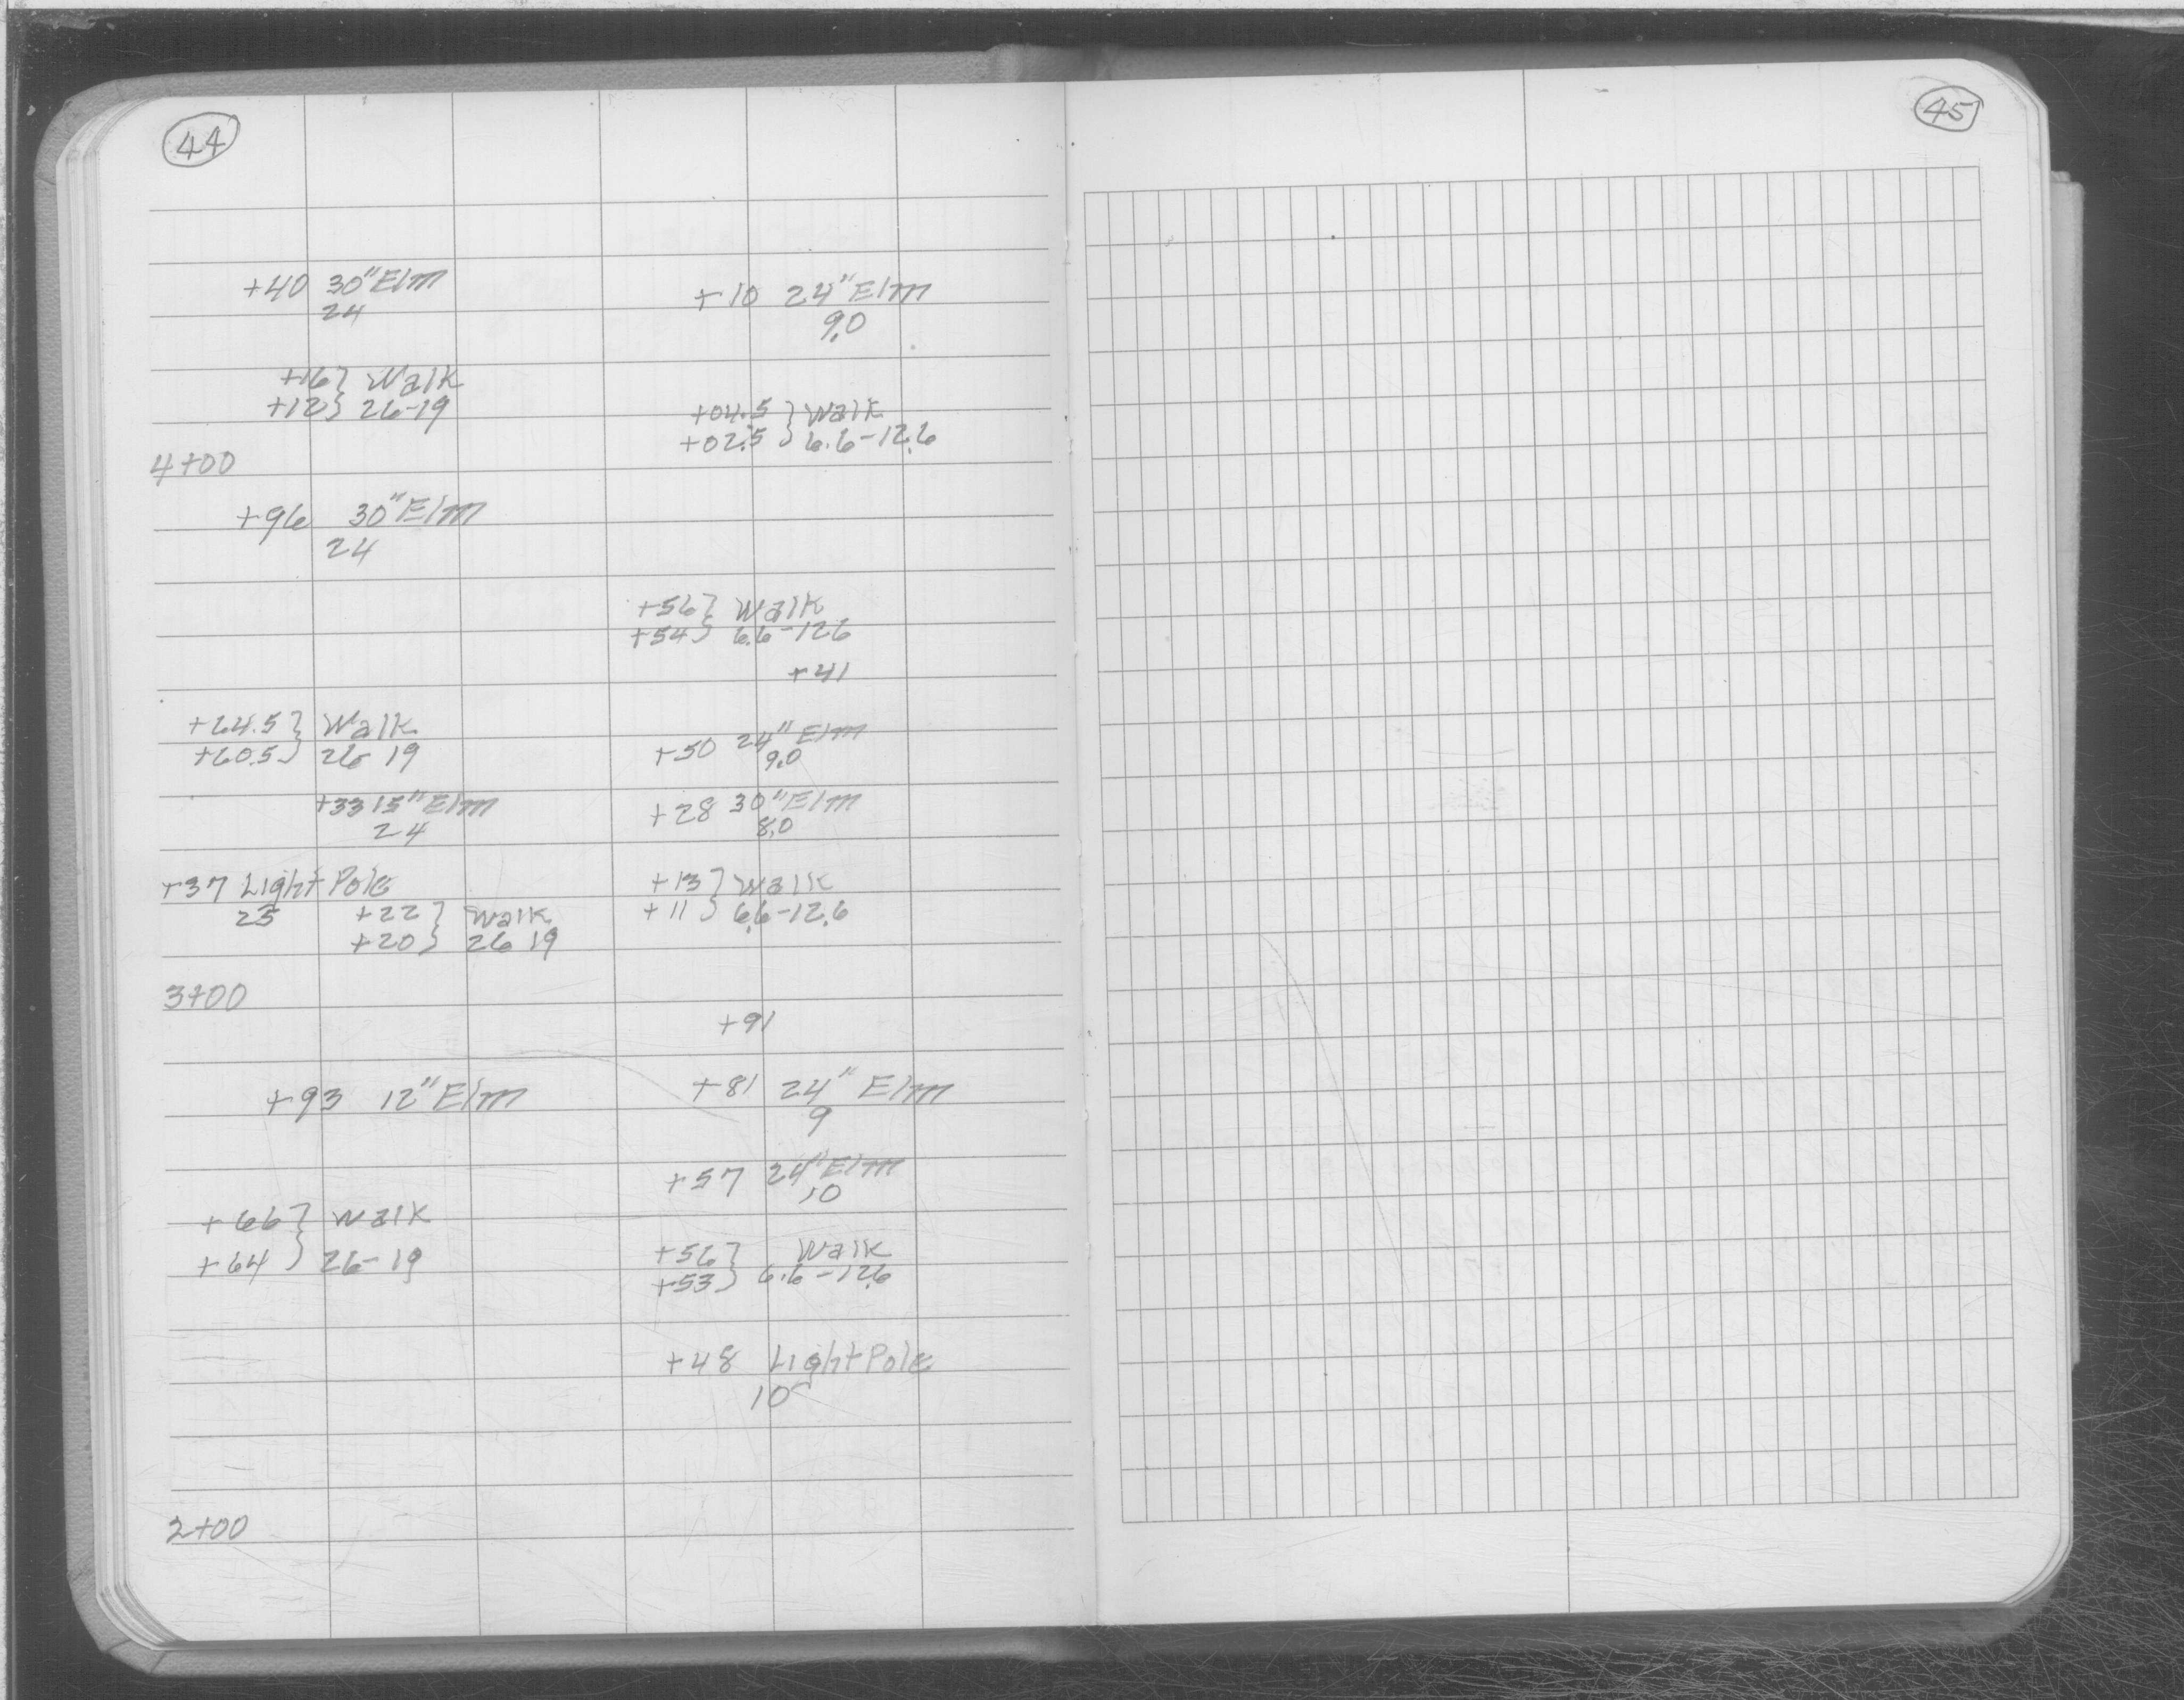 44
45
+40 30" Elm
24
+10 24" Elm
9.0
+16 } Walk
+12 } 26-19
+04.5 } Walk
+02.5 } 6.6-12.6
4+00
+96 30" Elm
24
+56 } Walk
+54 } 6.6-12.6
+41
+64.5 } Walk
+60.5 } 26 19
+50 24" Elm
9.0
+33 15" Elm
24
+28 30" Elm
8.0
+37 Light Pole
25
+22 } Walk
+20 } 26 19
+13 } Walk
+11 } 6.6-12.6
3+00
+91
+93 12" Elm
+81 24" Elm
9
+57 24" Elm
10
+66 } Walk
+64 } 26-19
+56 } Walk
+53 } 6.6-12.6
+48 Light Pole
10
2+00